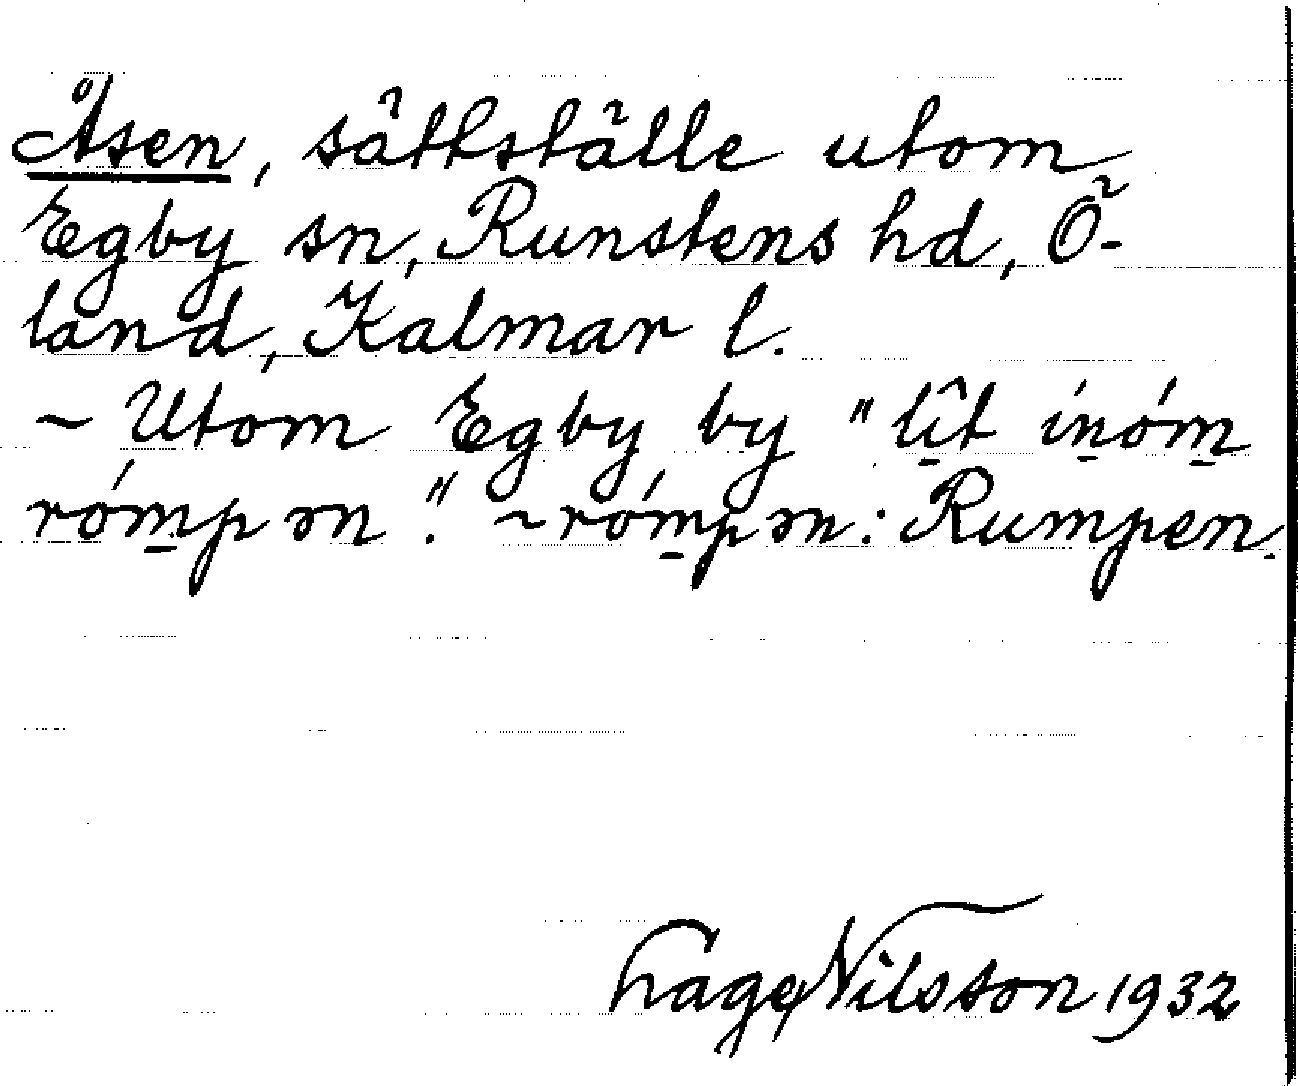 Åsen, sättställe utom
Egby sn, Runstens hd, Ö-
land, Kalmar l.
~ Utom Egby by "lît ínóm
rómpən". ~ rómpən: Rumpen.
Lage Nilsson 1932